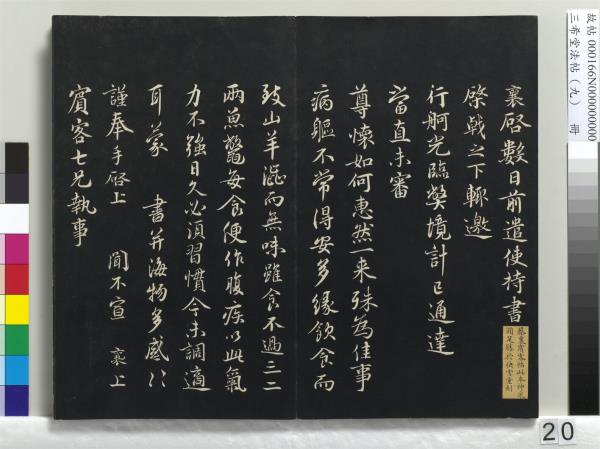 襄啓數日前遣使持書
棨戟之下輙邀
行舸光臨弊境計已通達
當直未審
尊懷如何惠然一来殊為佳事
病軀不常得安多緣飲食而
致山羊澁而無味雖食不過三二
兩魚鼈每食便作腹疾以此氣
力不強日久必須習慣今未調適
耳蒙 書并海物多感〻
謹奉手啓上 聞不宣 襄上
賓客七兄執事
故帖 000166N000000000
三希堂法帖（九） 冊
20